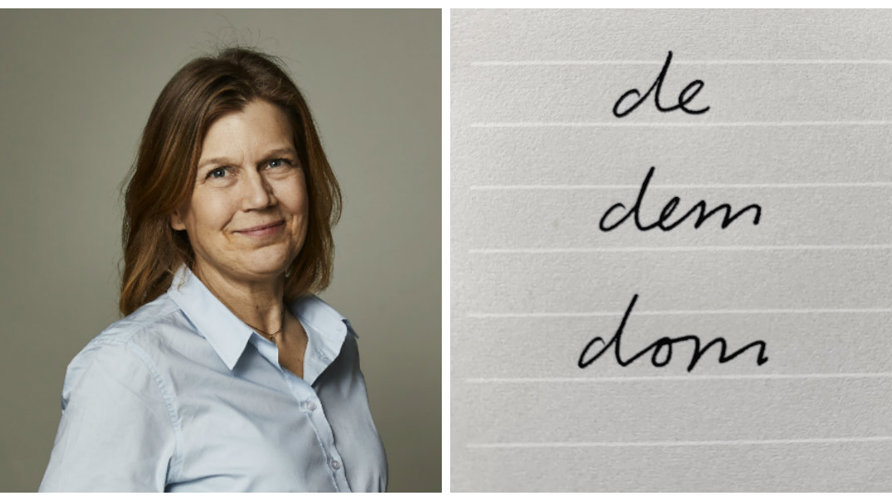 de
dem
dom